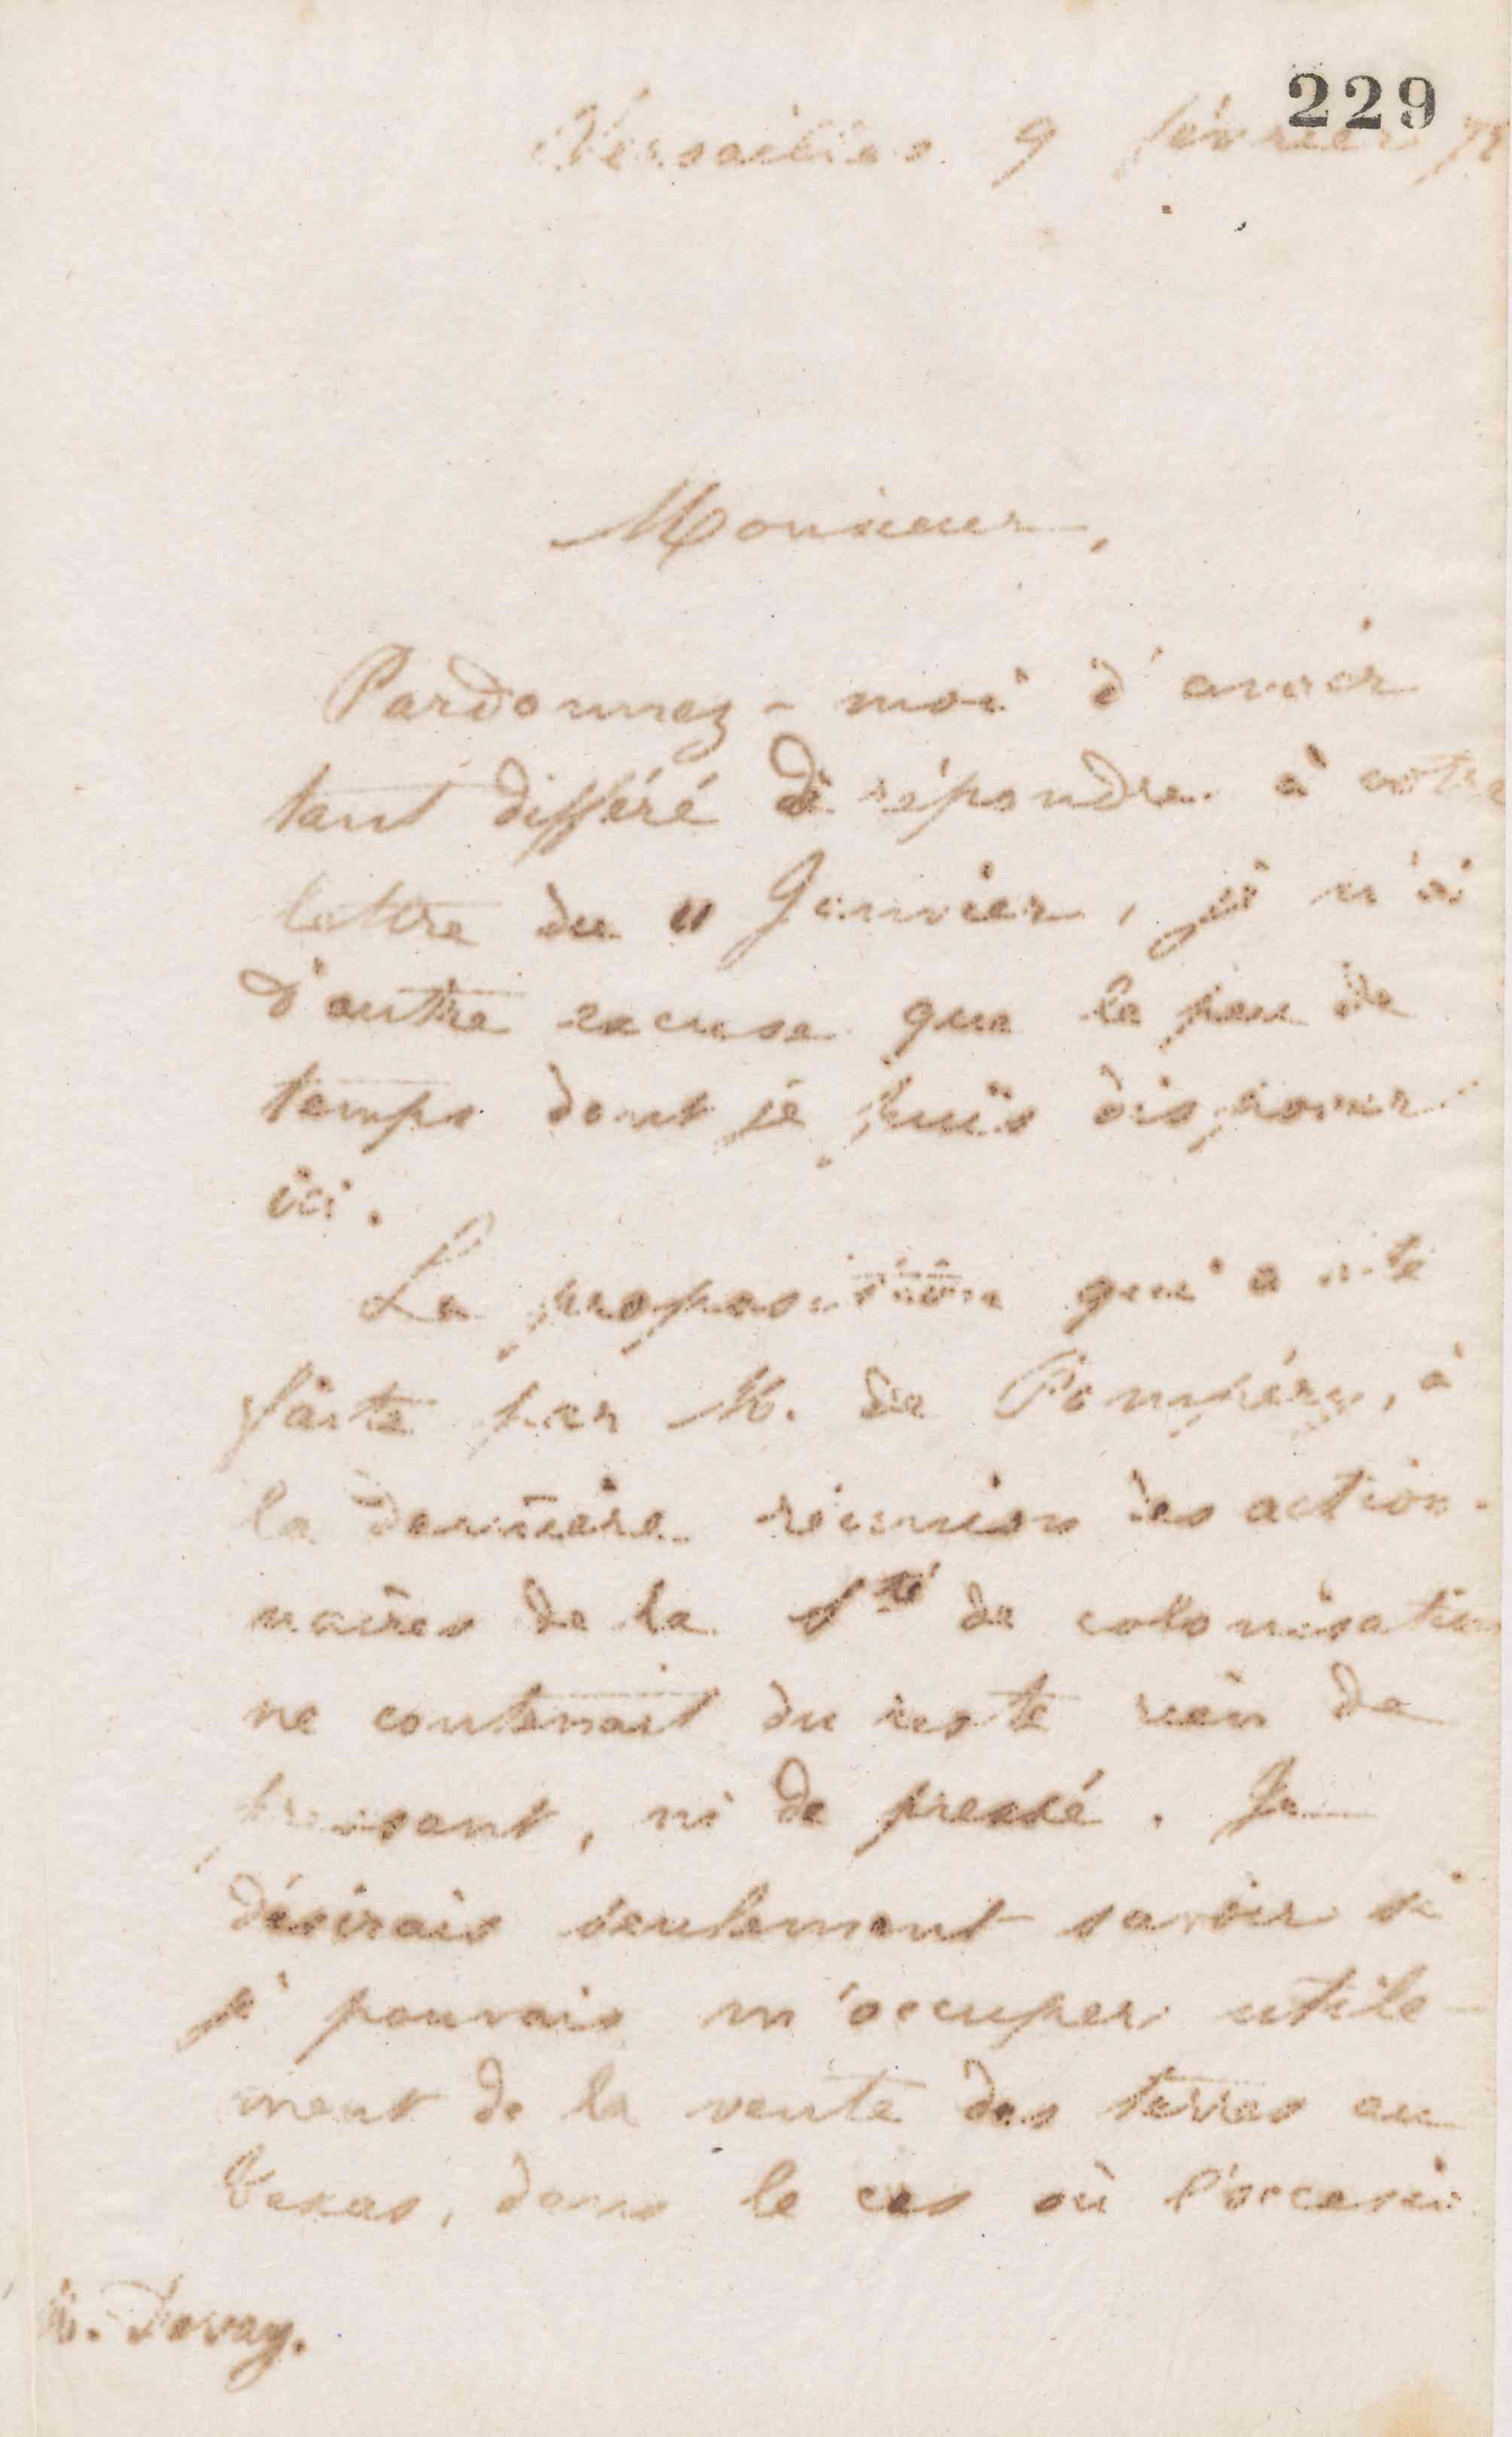 229
Versailles 9 février 72
Monsieur,
Pardonnez-moi d'avoir
tant différé de répondre à votre
lettre du 11 Janvier, je n'ai
d'autre excuse que le peu de
temps dont je puis disposer
ici.
La proposition qui a été
faite par M. de Pompéry, à
la dernière réunion des action-
naires de la Sté de colonisation
ne contenait du reste rien de
pressant, ni de pressé. Je
désirais seulement savoir si
je pouvais m'occuper utile-
ment de la vente des terres au
Texas, dans le cas où l'occasio
M. Devay.